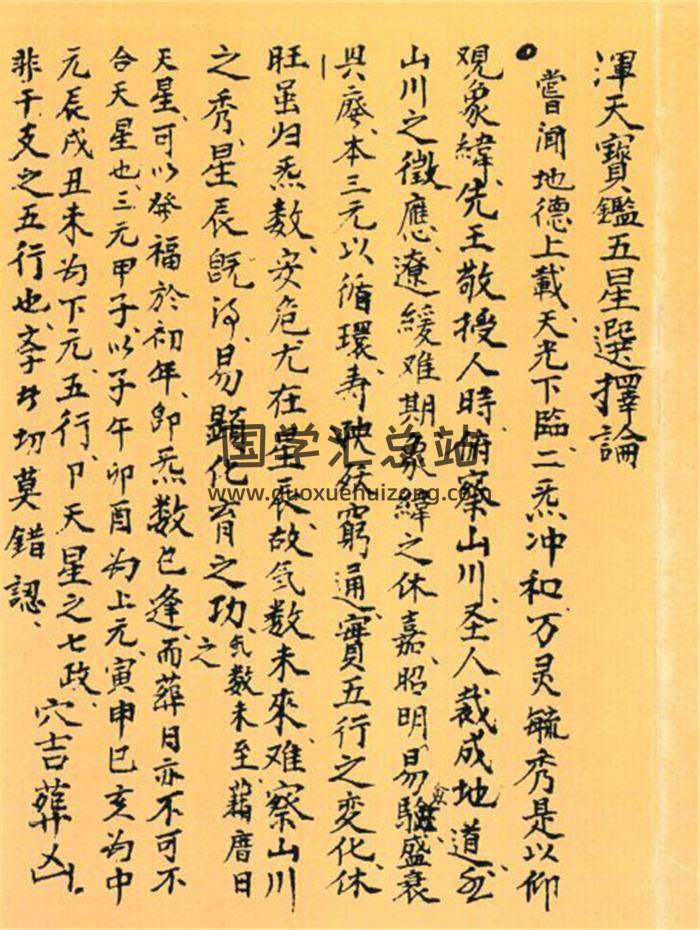 渾天寶鑑五星選擇論
嘗闻地德上載天光下臨二炁冲和万灵毓秀是以仰
观象緯先王敬授人時俯察山川圣人裁成地道
山川之徵應遼緩难期象緯之休嘉昭明易騐盛衰
兴廢本三元以循環寿殀窮通實五行之变化休
旺虽归炁数安危尤在星辰故气数未來难察山川
之秀星辰既泻易顯化育之功气数未至藉曆日之
天星可以發福於初年即炁数已逢而葬日亦不可不
合天星也三元甲子以子午卯酉为上元寅申巳亥为中
元辰戌丑未为下元五行卩天星之七政
非干支之五行也切莫錯認
穴吉葬凶
国学汇总站
www.guoxuehuizong.com